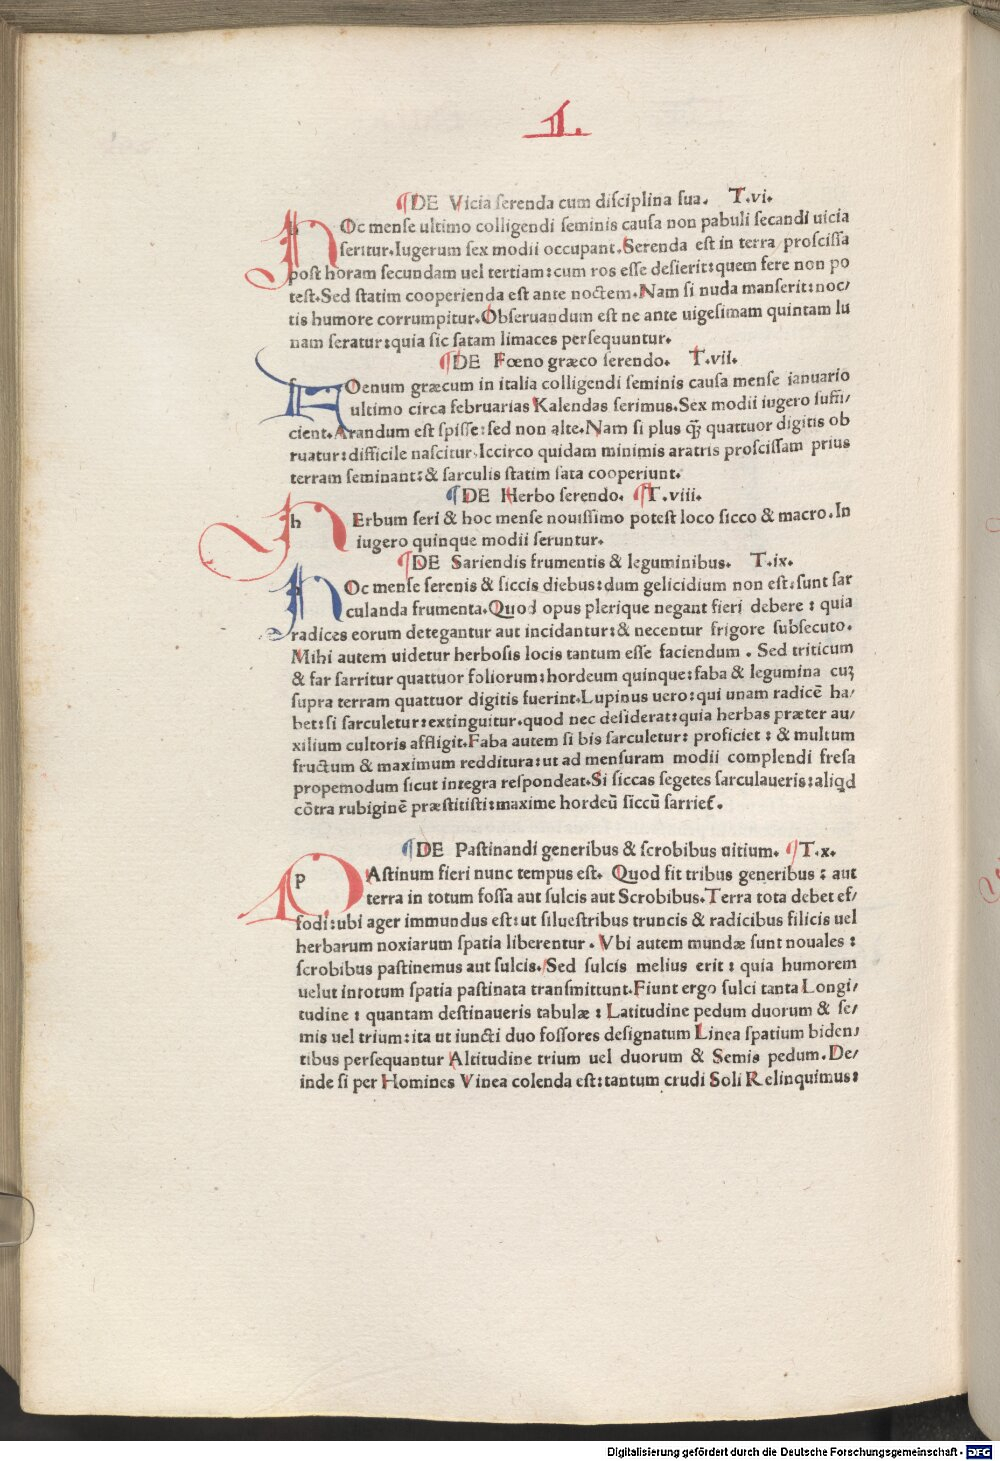 1.
¶DE Vicia ſerenda cum diſciplina ſua. T.vi.
HOc menſe ultimo colligendi ſeminis cauſa non pabuli ſecandi uicia
ſeritur.Iugerum ſex modii occupant.Serenda eſt in terra proſciſſa
poſt horam ſecundam uel tertiam:cum ros eſſe deſierit:quem fere non po
teſt.Sed ſtatim cooperienda eſt ante noctem.Nam ſi nuda manſerit:noc/
tis humore corrumpitur.Obſeruandum eſt ne ante uigeſimam quintam lu
nam ſeratur:quia ſic ſatam limaces perſequuntur.
¶DE Fœno græco ſerendo. T.vii.
fOenum græcum in italia colligendi ſeminis cauſa menſe ianuario
ultimo circa februarias Kalendas ſerimus.Sex modii iugero ſuffi/
cient.Arandum eſt ſpiſſe:ſed non alte.Nam ſi plus q̄ꝫ quattuor digitis ob
ruatur:difficile naſcitur.Iccirco quidam minimis aratris proſciſſam prius
terram ſeminant:& ſarculis ſtatim ſata cooperiunt.
¶DE Herbo ſerendo. ¶T.viii.
hErbum ſeri & hoc menſe nouiſſimo poteſt loco ſicco & macro.In
iugero quinque modii ſeruntur.
¶DE Sariendis frumentis & leguminibus. T.ix.
HOc menſe ſerenis & ſiccis diebus:dum gelicidium non eſt:ſunt ſar
culanda frumenta.Quod opus plerique negant fieri debere : quia
radices eorum detegantur aut incidantur:& necentur frigore ſubſecuto.
Mihi autem uidetur herboſis locis tantum eſſe faciendum . Sed triticum
& far ſarritur quattuor foliorum:hordeum quinque:faba & legumina cuꝫ
ſupra terram quattuor digitis fuerint.Lupinus uero:qui unam radicē ha/
bet:ſi ſarculetur:extinguitur.quod nec deſiderat:quia herbas præter au/
xilium cultoris affligit.Faba autem ſi bis ſarculetur: proficiet : & multum
fructum & maximum redditura:ut ad menſuram modii complendi freſa
propemodum ſicut integra reſpondeat.Si ſiccas ſegetes ſarculaueris:aliqd
cōtra rubiginē præſtitiſti:maxime hordeū ſiccū ſarrieſ.
¶DE Paſtinandi generibus & ſcrobibus uitium. ¶T.x.
pAſtinum fieri nunc tempus eſt. Quod fit tribus generibus : aut
terra in totum foſſa aut ſulcis aut Scrobibus.Terra tota debet ef/
fodi:ubi ager immundus eſt:ut ſilueſtribus truncis & radicibus filicis uel
herbarum noxiarum ſpatia liberentur . Vbi autem mundæ ſunt nouales :
ſcrobibus paſtinemus aut ſulcis. Sed ſulcis melius erit : quia humorem
uelut intotum ſpatia paſtinata tranſmittunt.Fiunt ergo ſulci tanta Longi/
tudine : quantam deſtinaueris tabulæ : Latitudine pedum duorum & ſe/
mis uel trium:ita ut iuncti duo foſſores deſignatum Linea ſpatium biden/
tibus perſequantur Altitudine trium uel duorum & Semis pedum.De/
inde ſi per Homines Vinea colenda eſt:tantum crudi Soli Relinquimus:
Digitalisierung gefördert durch die Deutsche Forschungsgemeinschaft - DFG